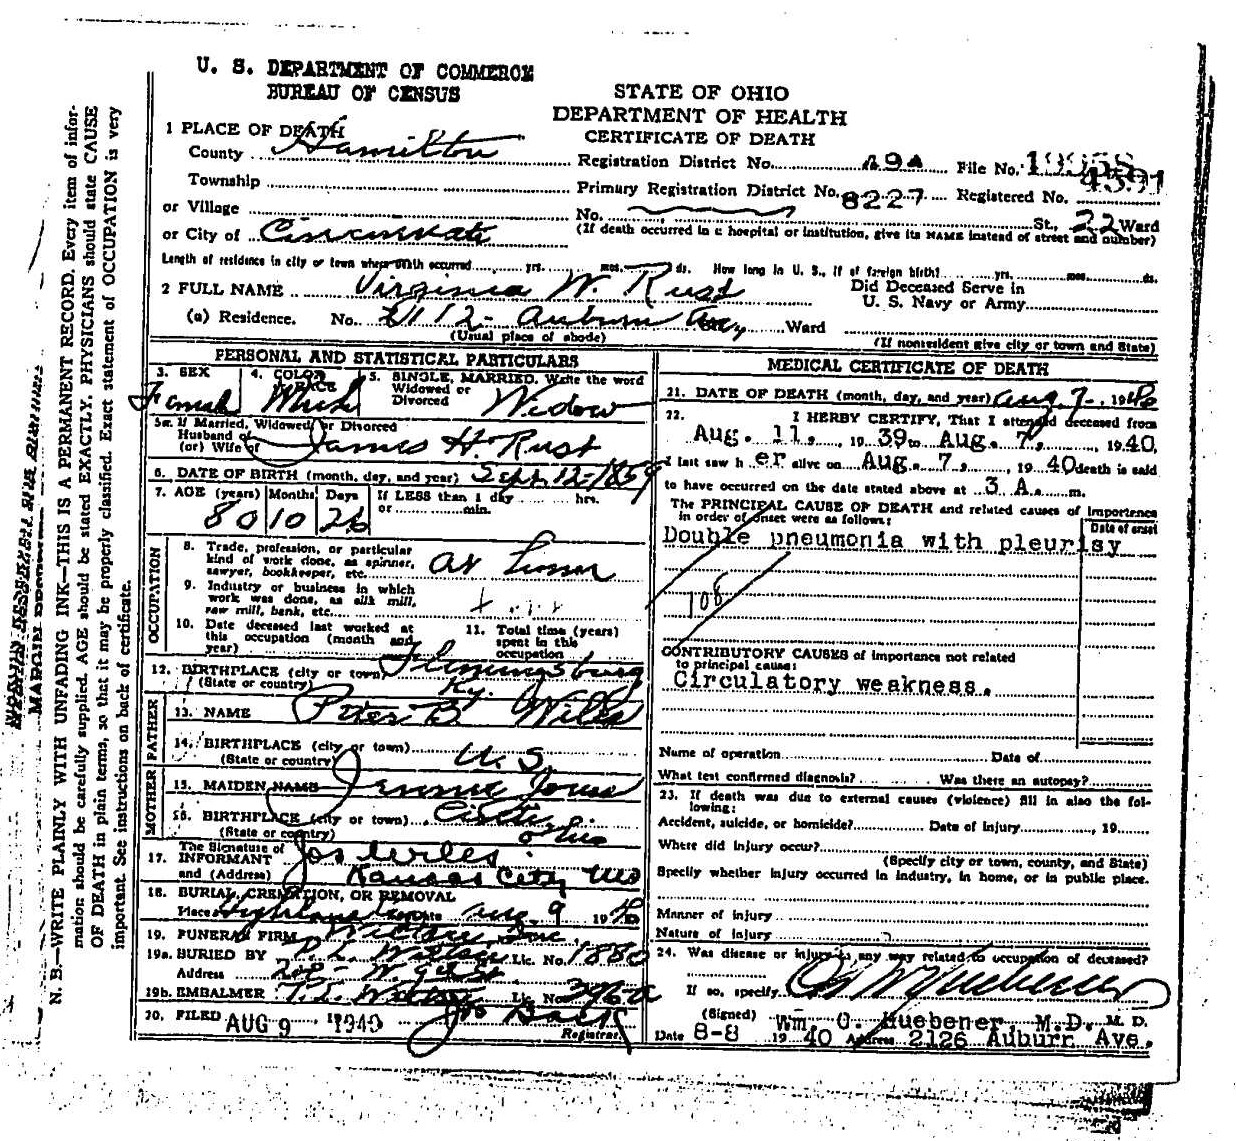 U. S. DEPARTMENT OF COMMERCE
BUREAU OF CENSUS
STATE OF OHIO
DEPARTMENT OF HEALTH
CERTIFICATE OF DEATH
1 PLACE OF DEATH
County Hamilton
Registration District No. 494 File No.
Township
Primary Registration District No. 8227 Registered No. 4391
or Village
No. St., 22 Ward
or City of Cincinnati
(If death occurred in a hospital or institution, give its NAME instead of street and number)
Length of residence in city or town where death occurred yrs. mos. ds. How long in U. S., if of foreign birth? yrs. mos. ds.
2 FULL NAME Virginia W. Rust
Did Deceased Serve in
U. S. Navy or Army
(a) Residence. No. 2112- Auburn Ave Ward
(Usual place of abode)
(If nonresident give city or town and State)
PERSONAL AND STATISTICAL PARTICULARS
3. SEX Female
4. COLOR RACE White
5. SINGLE, MARRIED. Write the word
Widowed or
Divorced Widow
5a. If Married, Widowed or Divorced
Husband of
(or) Wife of James H. Rust
6. DATE OF BIRTH (month, day, and year) Sept. 12-1859
7. AGE (years) 80 Months 10 Days 26 If LESS than 1 day hrs.
or min.
OCCUPATION
8. Trade, profession, or particular
kind of work done, as spinner,
sawyer, bookkeeper, etc. At
9. Industry or business in which
work was done, as silk mill,
saw mill, bank, etc.
10. Date deceased last worked at
this occupation (month and
year)
11. Total time (years)
spent in this
occupation
12. BIRTHPLACE (city or town) Flemingsburg
(State or country) Ky.
FATHER
13. NAME Peter B. Wiles
14. BIRTHPLACE (city or town)
(State or country) U. S.
MOTHER
15. MAIDEN NAME Jennie Jones
16. BIRTHPLACE (city or town)
(State or country) Ohio
17. The Signature of
INFORMANT Jos Wiles
and (Address) Kansas City Mo
18. BURIAL, CREMATION, OR REMOVAL
Place Date Aug. 9 1940
19. FUNERAL FIRM
19a. BURIED BY Lic. No. 1880
Address
19b. EMBALMER Lic. No.
20. FILED AUG 9 1940
Registrar.
MEDICAL CERTIFICATE OF DEATH
21. DATE OF DEATH (month, day, and year) Aug. 7-, 1940
22. I HERBY CERTIFY, That I attended deceased from
Aug. 11, 1939 to Aug. 7, 1940,
I last saw her alive on Aug. 7, 1940 death is said
to have occurred on the date stated above at 3 A. m.
The PRINCIPAL CAUSE OF DEATH and related causes of importance
in order of onset were as follows:
Date of onset
Double pneumonia with pleurisy
108
CONTRIBUTORY CAUSES of importance not related
to principal cause:
Circulatory weakness.
Name of operation Date of
What test confirmed diagnosis? Was there an autopsy?
23. If death was due to external causes (violence) fill in also the fol-
lowing:
Accident, suicide, or homicide? Date of injury, 19
Where did injury occur?
(Specify city or town, county, and State)
Specify whether injury occurred in industry, in home, or in public place.
Manner of injury
Nature of injury
24. Was disease or injury in any way related to occupation of deceased?
If so, specify
(Signed) Wm. O. Huebener, M.D. M. D.
Date 8-8 1940 Address 2126 Auburn Ave.
N. B.—WRITE PLAINLY WITH UNFADING INK—THIS IS A PERMANENT RECORD. Every item of infor-
mation should be carefully supplied. AGE should be stated EXACTLY. PHYSICIANS should state CAUSE
OF DEATH in plain terms, so that it may be properly classified. Exact statement of OCCUPATION is very
important. See instructions on back of certificate.